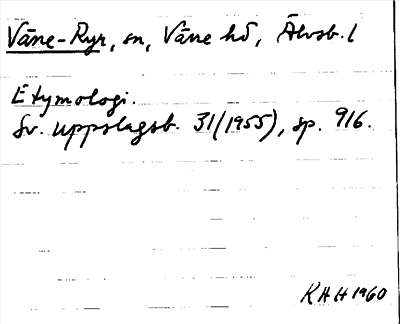 Väne-Ryr, sn, Väne hd, Älvsb. l
Etymologi.
Sv. uppslagsb. 31(1955), sp. 916.
KHH 1960